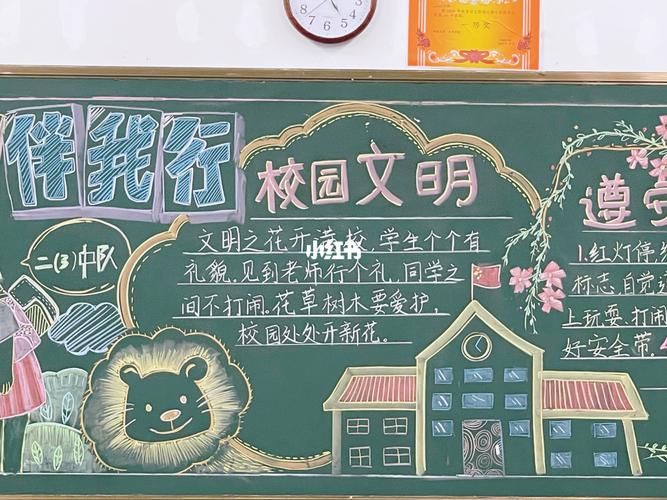 伴我行
二(3)中队
校园文明
文明之花开满校,学生个个有
礼貌.见到老师行个礼,同学之
间不打闹.花草树木要爱护,
校园处处开新花。
小红书
遵
1.红灯停
标志,自觉
上玩耍、打闹
好安全带.